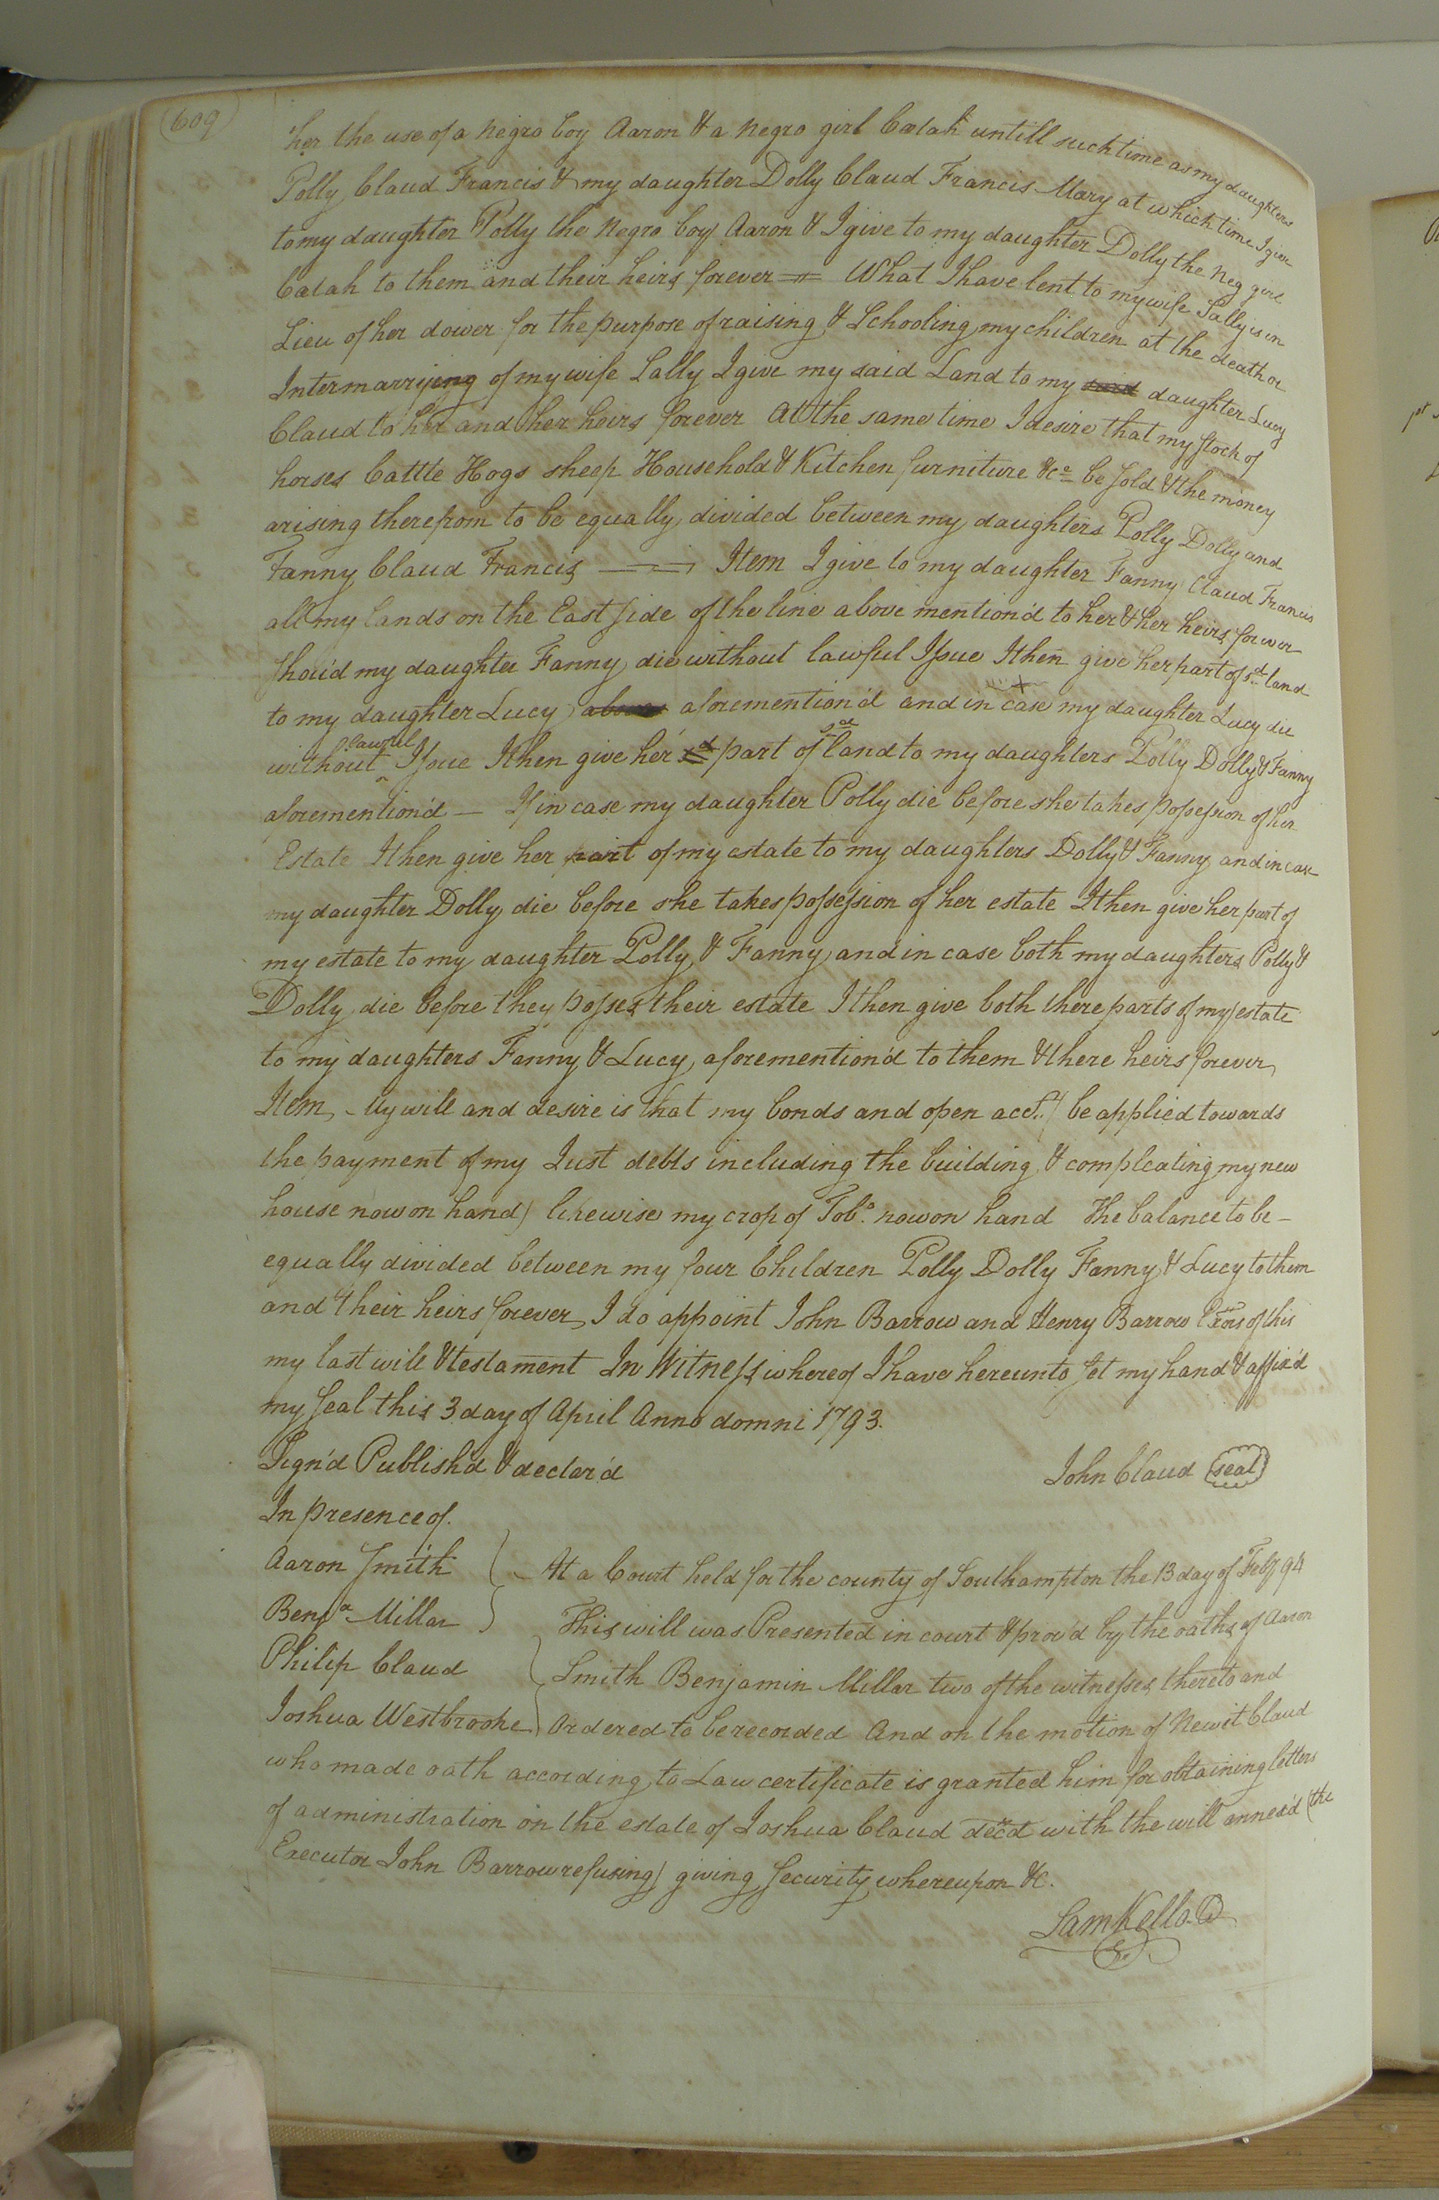 (609)
her the use of a negro boy Aaron & a negro girl Cælah untill such time as my daughters
Polly Claud Francis & my daughter Dolly Claud Francis Mary at which time I give
to my daughter Polly the Negro boy Aaron & I give to my daughter Dolly the Neg girl
Cælah to them and their heirs forever — What I have lent to my wife Sally is in
Lieu of her dower for the purpose of raising & Schooling my children at the death or
Intermarrying of my wife Sally I give my said Land to my said daughter Lucy
Claud to her and her heirs forever At the same time I desire that my stock of
horses Cattle Hogs sheep Household & Kitchen furniture &c be sold & the money
arising therefrom to be equally divided between my daughters Polly Dolly and
Fanny Claud Francis — Item I give to my daughter Fanny Claud Francis
all my lands on the East side of the line above mention'd to her & her heirs forever
shou'd my daughter Fanny die without lawful Issue I then give her part of sd land
to my daughter Lucy above aforemention'd and in case my daughter Lucy die
without lawful Issue I then give her sd part of sd land to my daughters Polly Dolly & Fanny
aforemention'd — If in case my daughter Polly die before she takes possession of her
Estate I then give her part of my estate to my daughters Dolly & Fanny and in case
my daughter Dolly die before she takes possession of her estate I then give her part of
my estate to my daughter Polly & Fanny and in case both my daughters Polly &
Dolly die before they possess their estate I then give both there parts of my estate
to my daughters Fanny & Lucy aforemention'd to them & there heirs forever
Item My will and desire is that my bonds and open acct. / be applied towards
the payment of my Just debts including the building & compleating my new
house now on hand) likewise my crop of Tobo. now on hand The balance to be
equally divided between my four Children Polly Dolly Fanny & Lucy to them
and their heirs forever I do appoint John Barrow and Henry Barrow Exors of this
my last will & testament In Witness whereof I have hereunto set my hand & affix'd
my seal this 3 day of April Anno domni 1793.
Sign'd Publish'd & declar'd
John Claud (seal)
In presence of.
Aaron Smith
Benja Millar
Philip Claud
Joshua Westbrooke
At a Court held for the county of Southampton the 13 day of Feby 94
This will was Presented in court & prov'd by the oaths of Aaron
Smith Benjamin Millar two of the witnesses thereto and
Ordered to be recorded And on the motion of Newit Claud
who made oath according to Law certificate is granted him for obtaining letters
of administration on the estate of Joshua Claud decd with the will annex'd (the
Executor John Barrow refusing) giving security whereupon &c.
Sam Kello